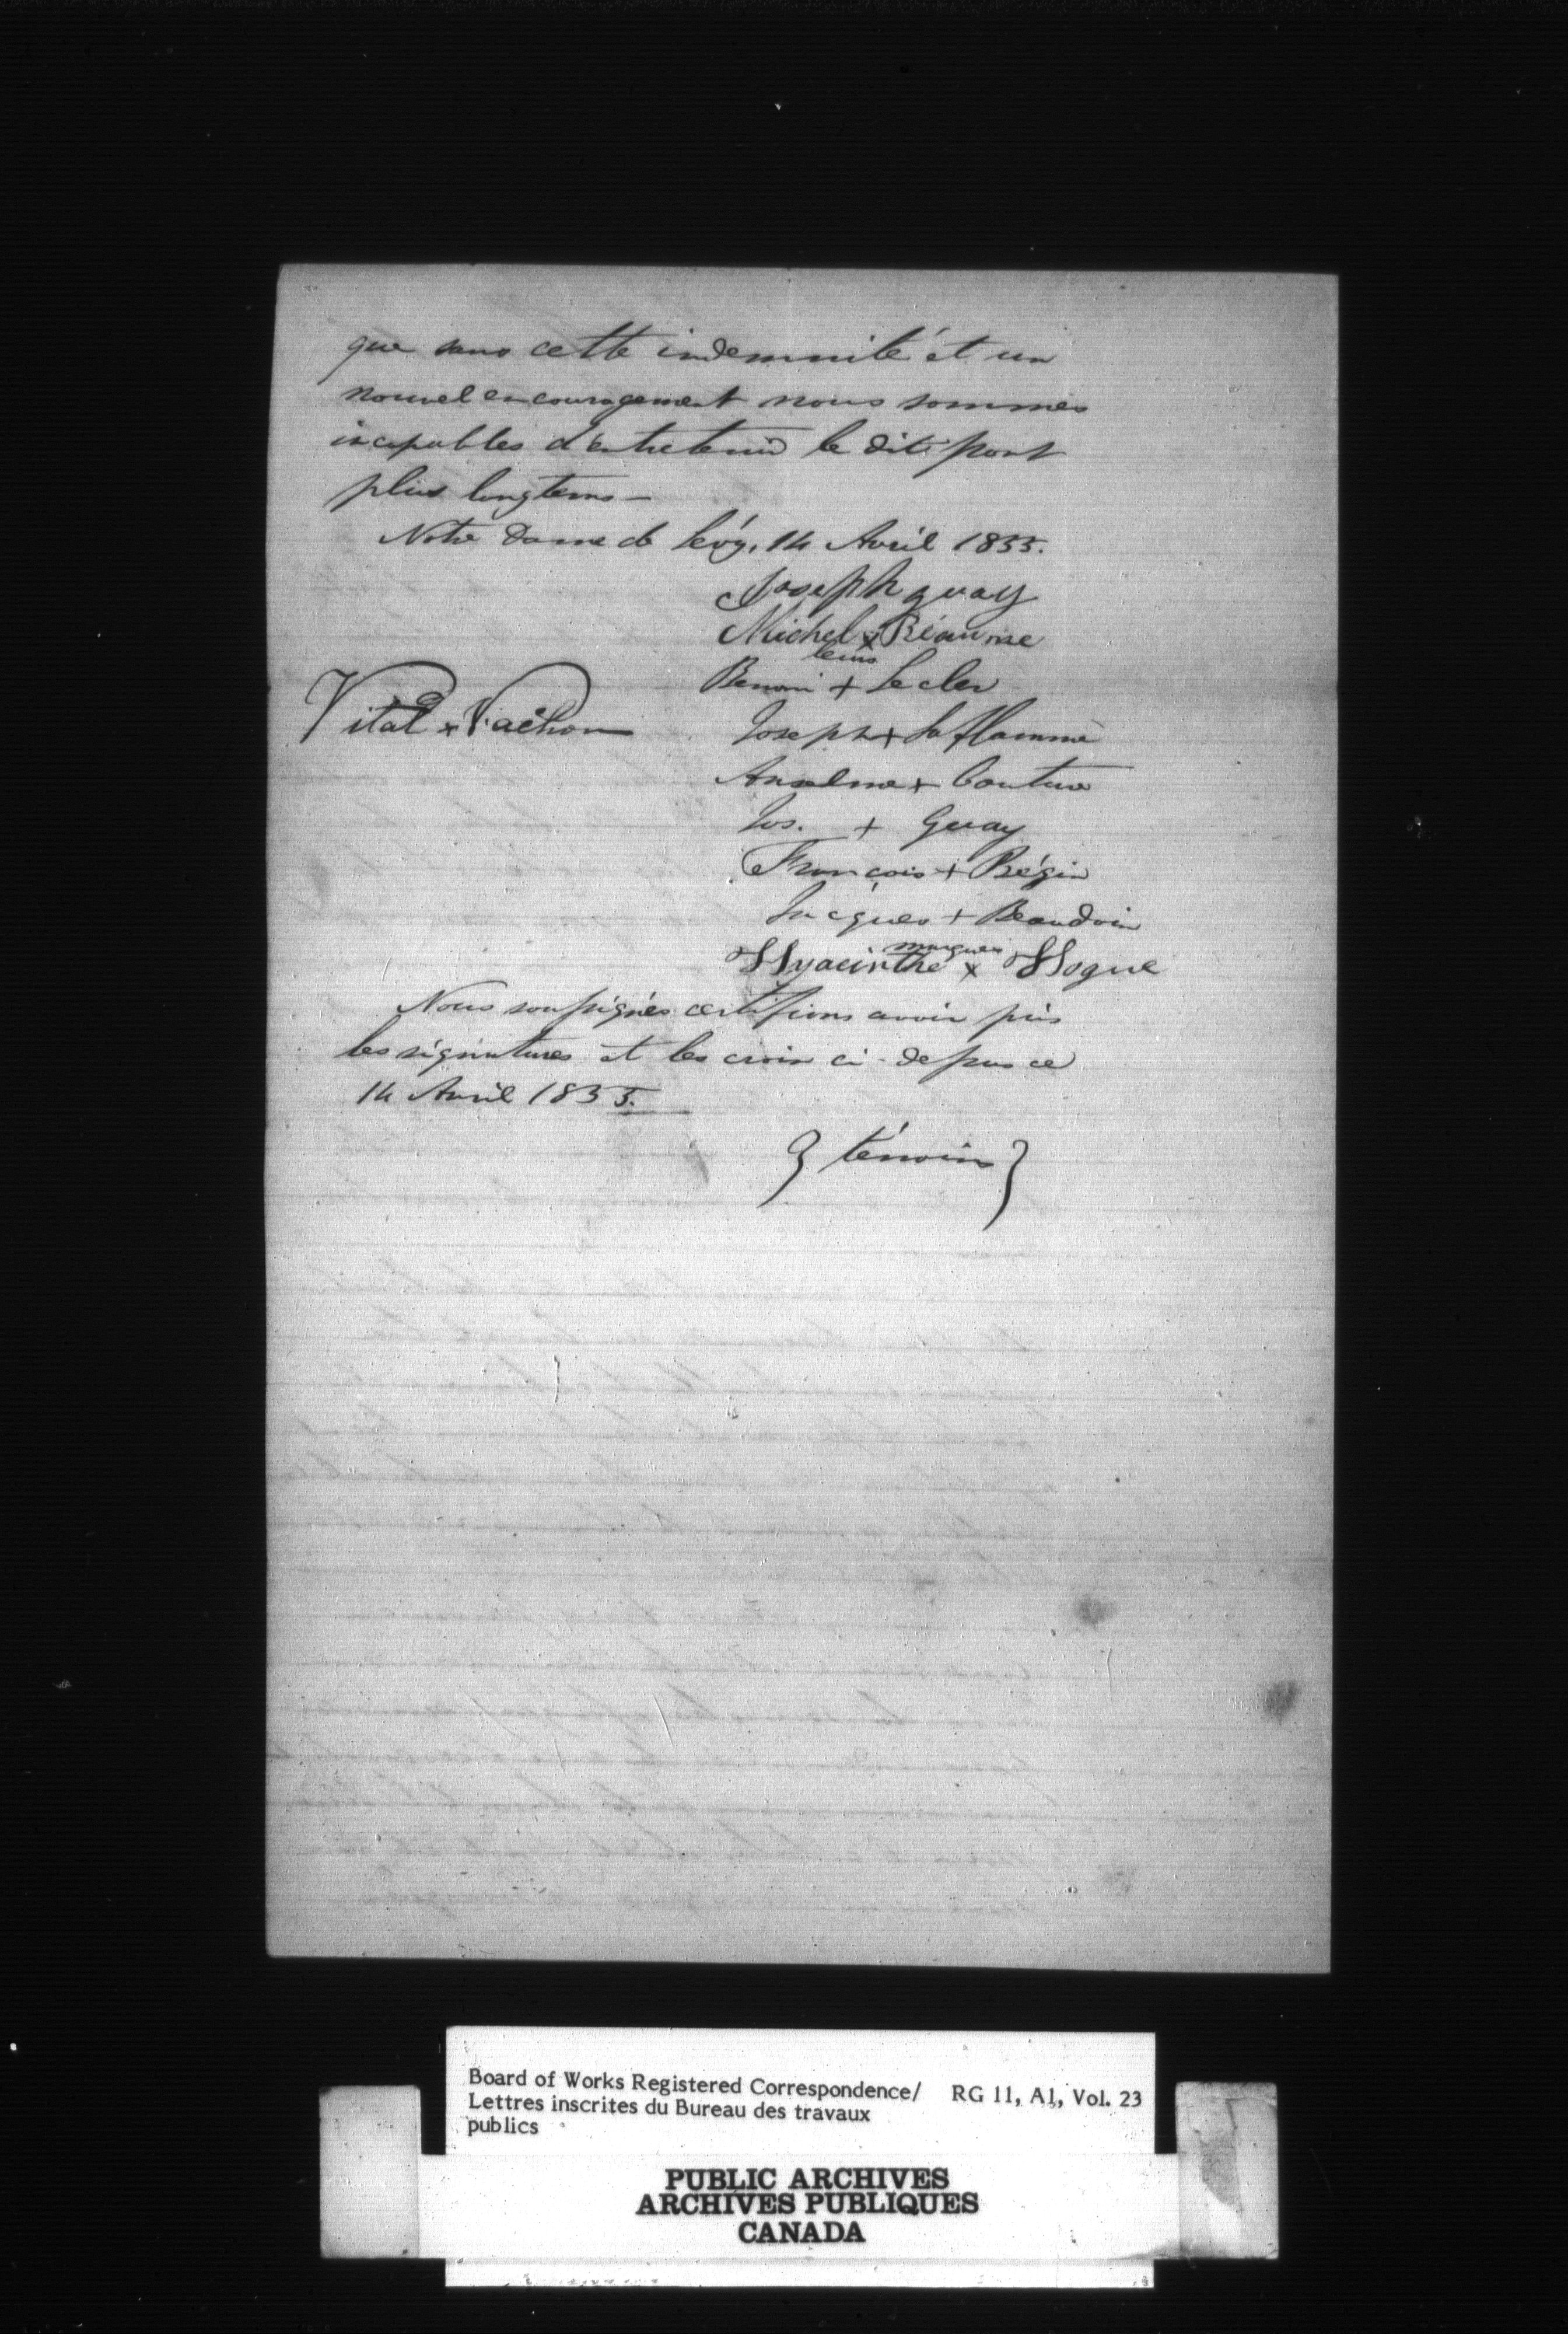 que sans cette indemnité et un
nouvel encouragement nous sommes
incapables d'entretenir le dit pont
plus longtems —
Notre Dame de Lévy, 14 Avril 1855.
Joseph guay
Michel x Réaume
leurs
Benoni + Lecler
Vital x Vachon
Joseph + Laflamme
Anselme + Couture
Jos. + Guay
François + Bégin
Jacques + Beaudoin
marques
Hyacinthe x Hogue
Nous soussignés certifions avoir pris
les signatures et les croix ci-dessus ce
14 Avril 1855.
} témoins }
Board of Works Registered Correspondence/
Lettres inscrites du Bureau des travaux
publics
RG 11, A1, Vol. 23
PUBLIC ARCHIVES
ARCHIVES PUBLIQUES
CANADA